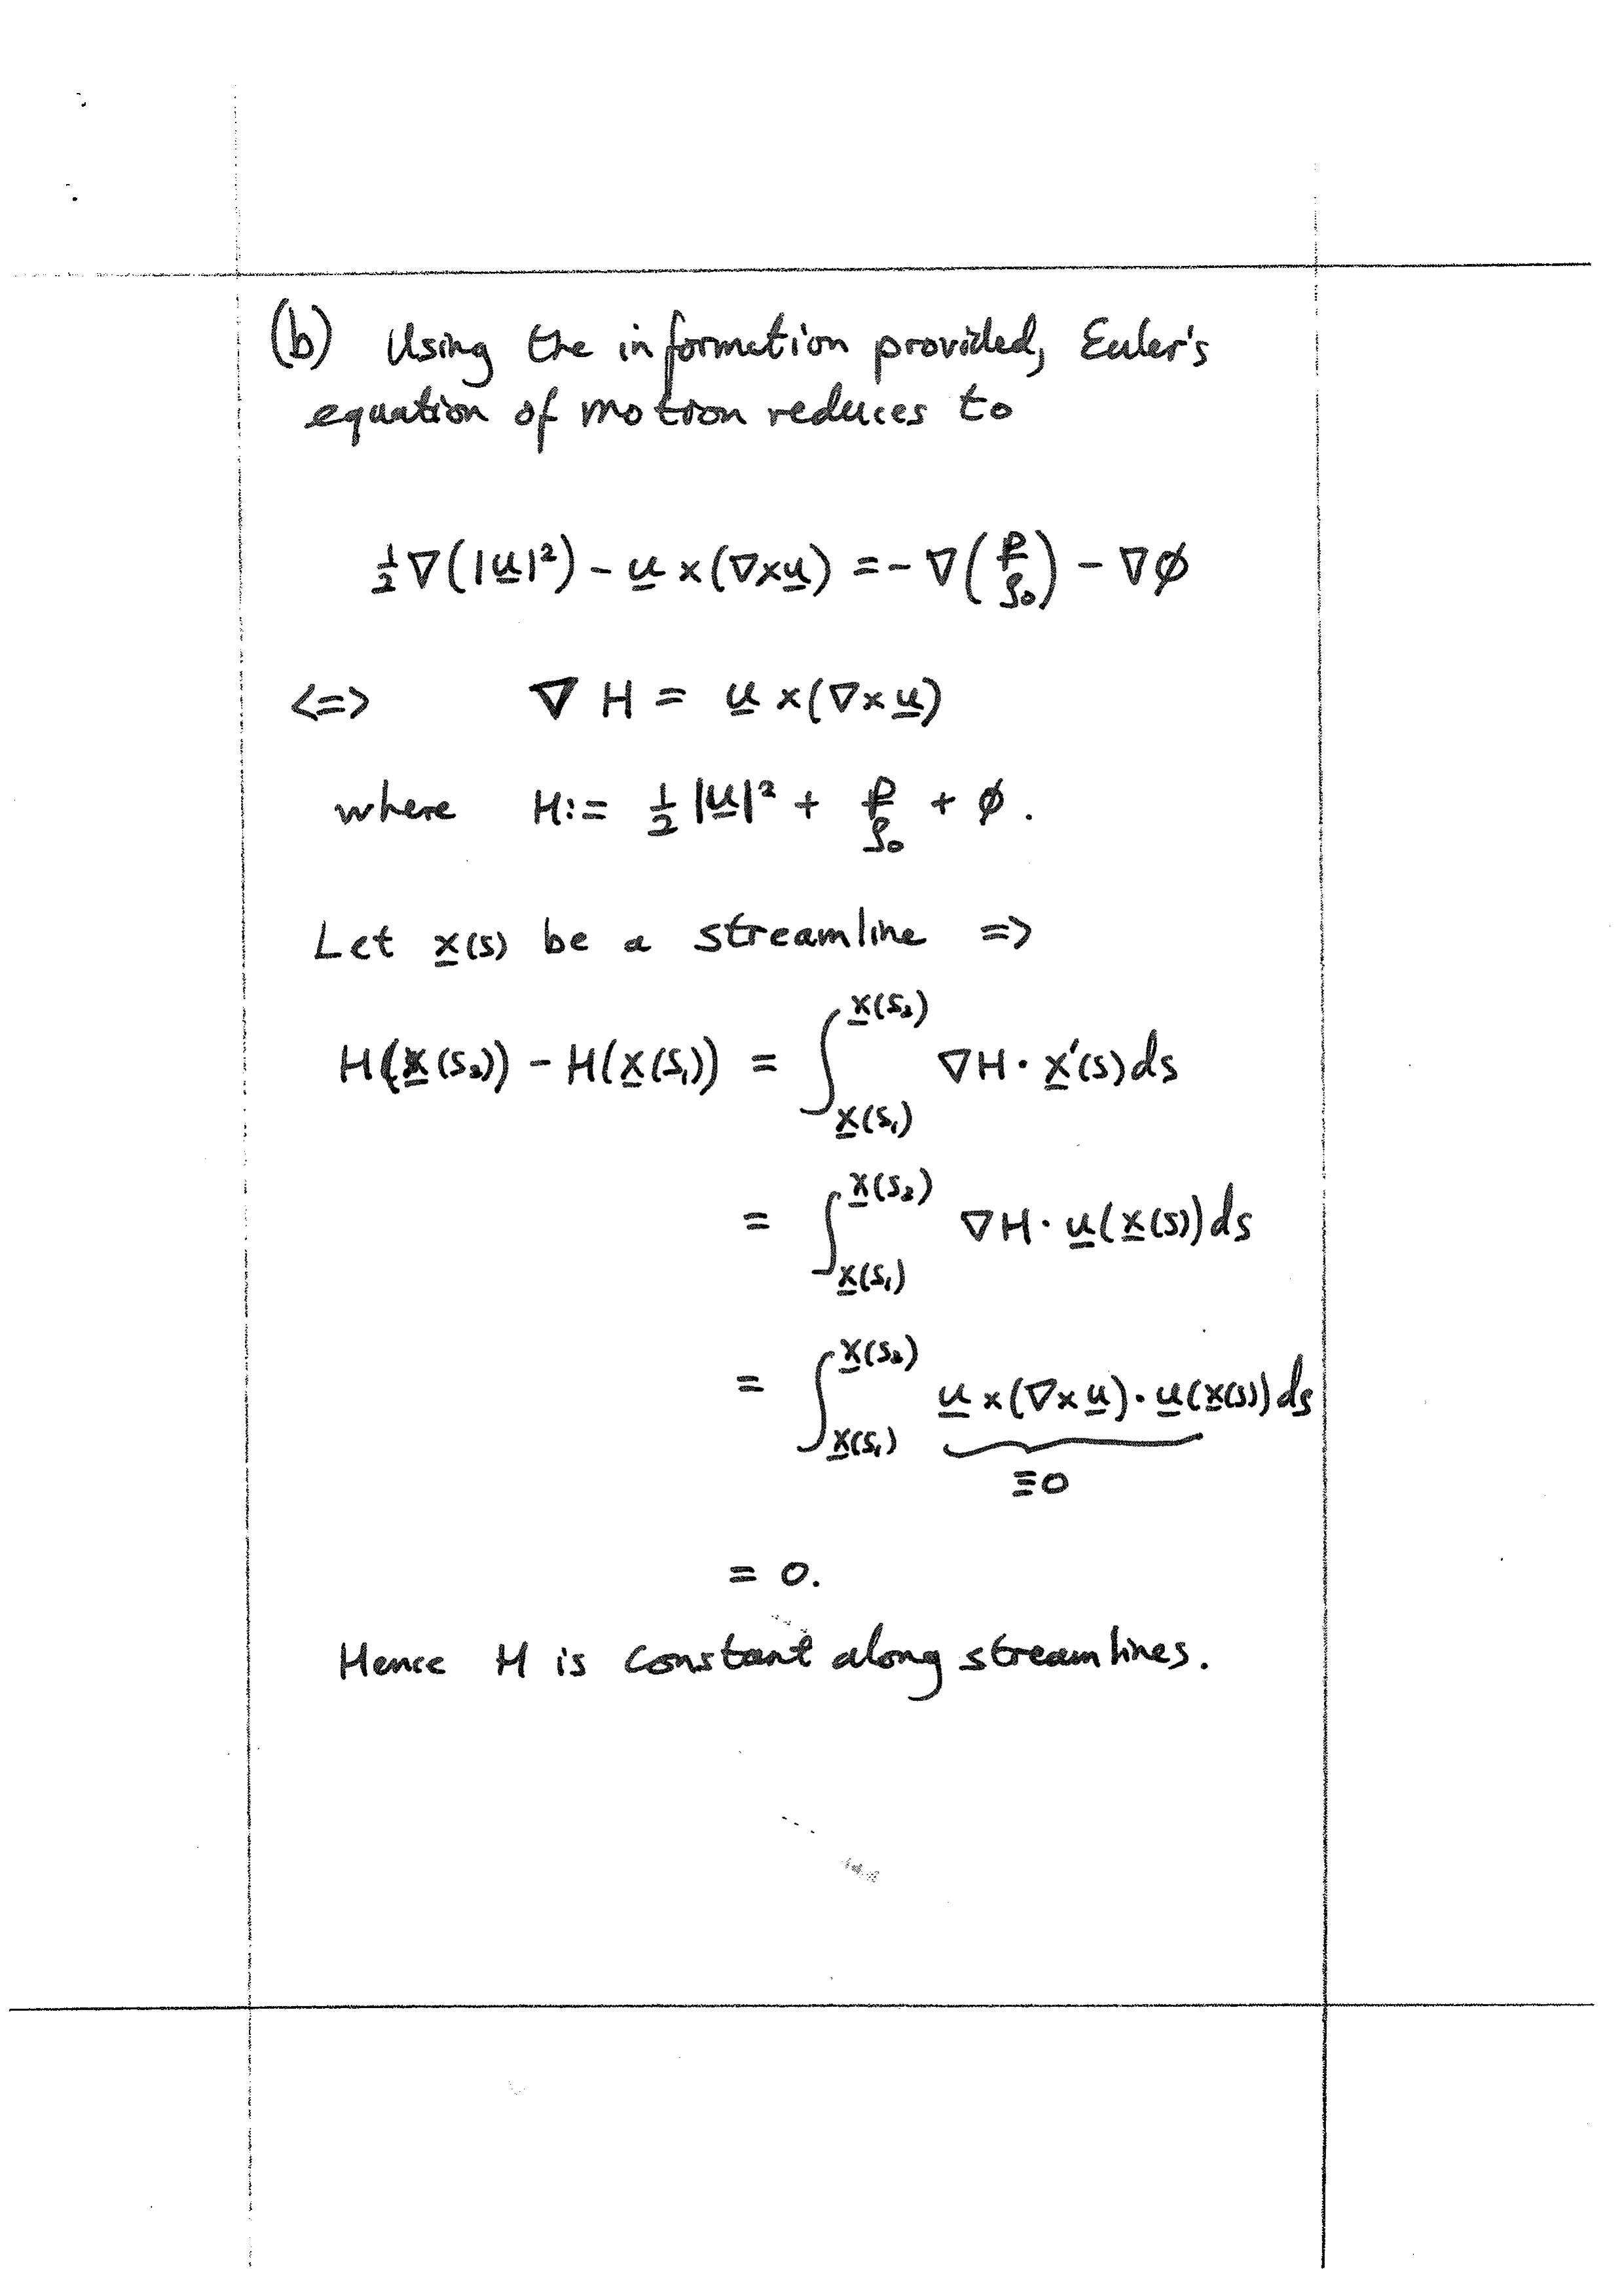 (b) Using the information provided, Euler's
equation of motion reduces to
½∇(|u̲|²) - u̲ × (∇×u̲) = - ∇(p/ρ₀) - ∇φ
<=> ∇ H = u̲ × (∇× u̲)
where H := ½ |u̲|² + p/ρ₀ + φ.
Let x̲(s) be a streamline =>
H(x̲(s₂)) - H(x̲(s₁)) = ∫_{x̲(s₁)}^{x̲(s₂)} ∇H · x̲'(s) ds
= ∫_{x̲(s₁)}^{x̲(s₂)} ∇H · u̲(x̲(s)) ds
= ∫_{x̲(s₁)}^{x̲(s₂)} u̲ × (∇× u̲) · u̲(x̲(s)) ds
≡ 0
= 0.
Hence H is constant along streamlines.